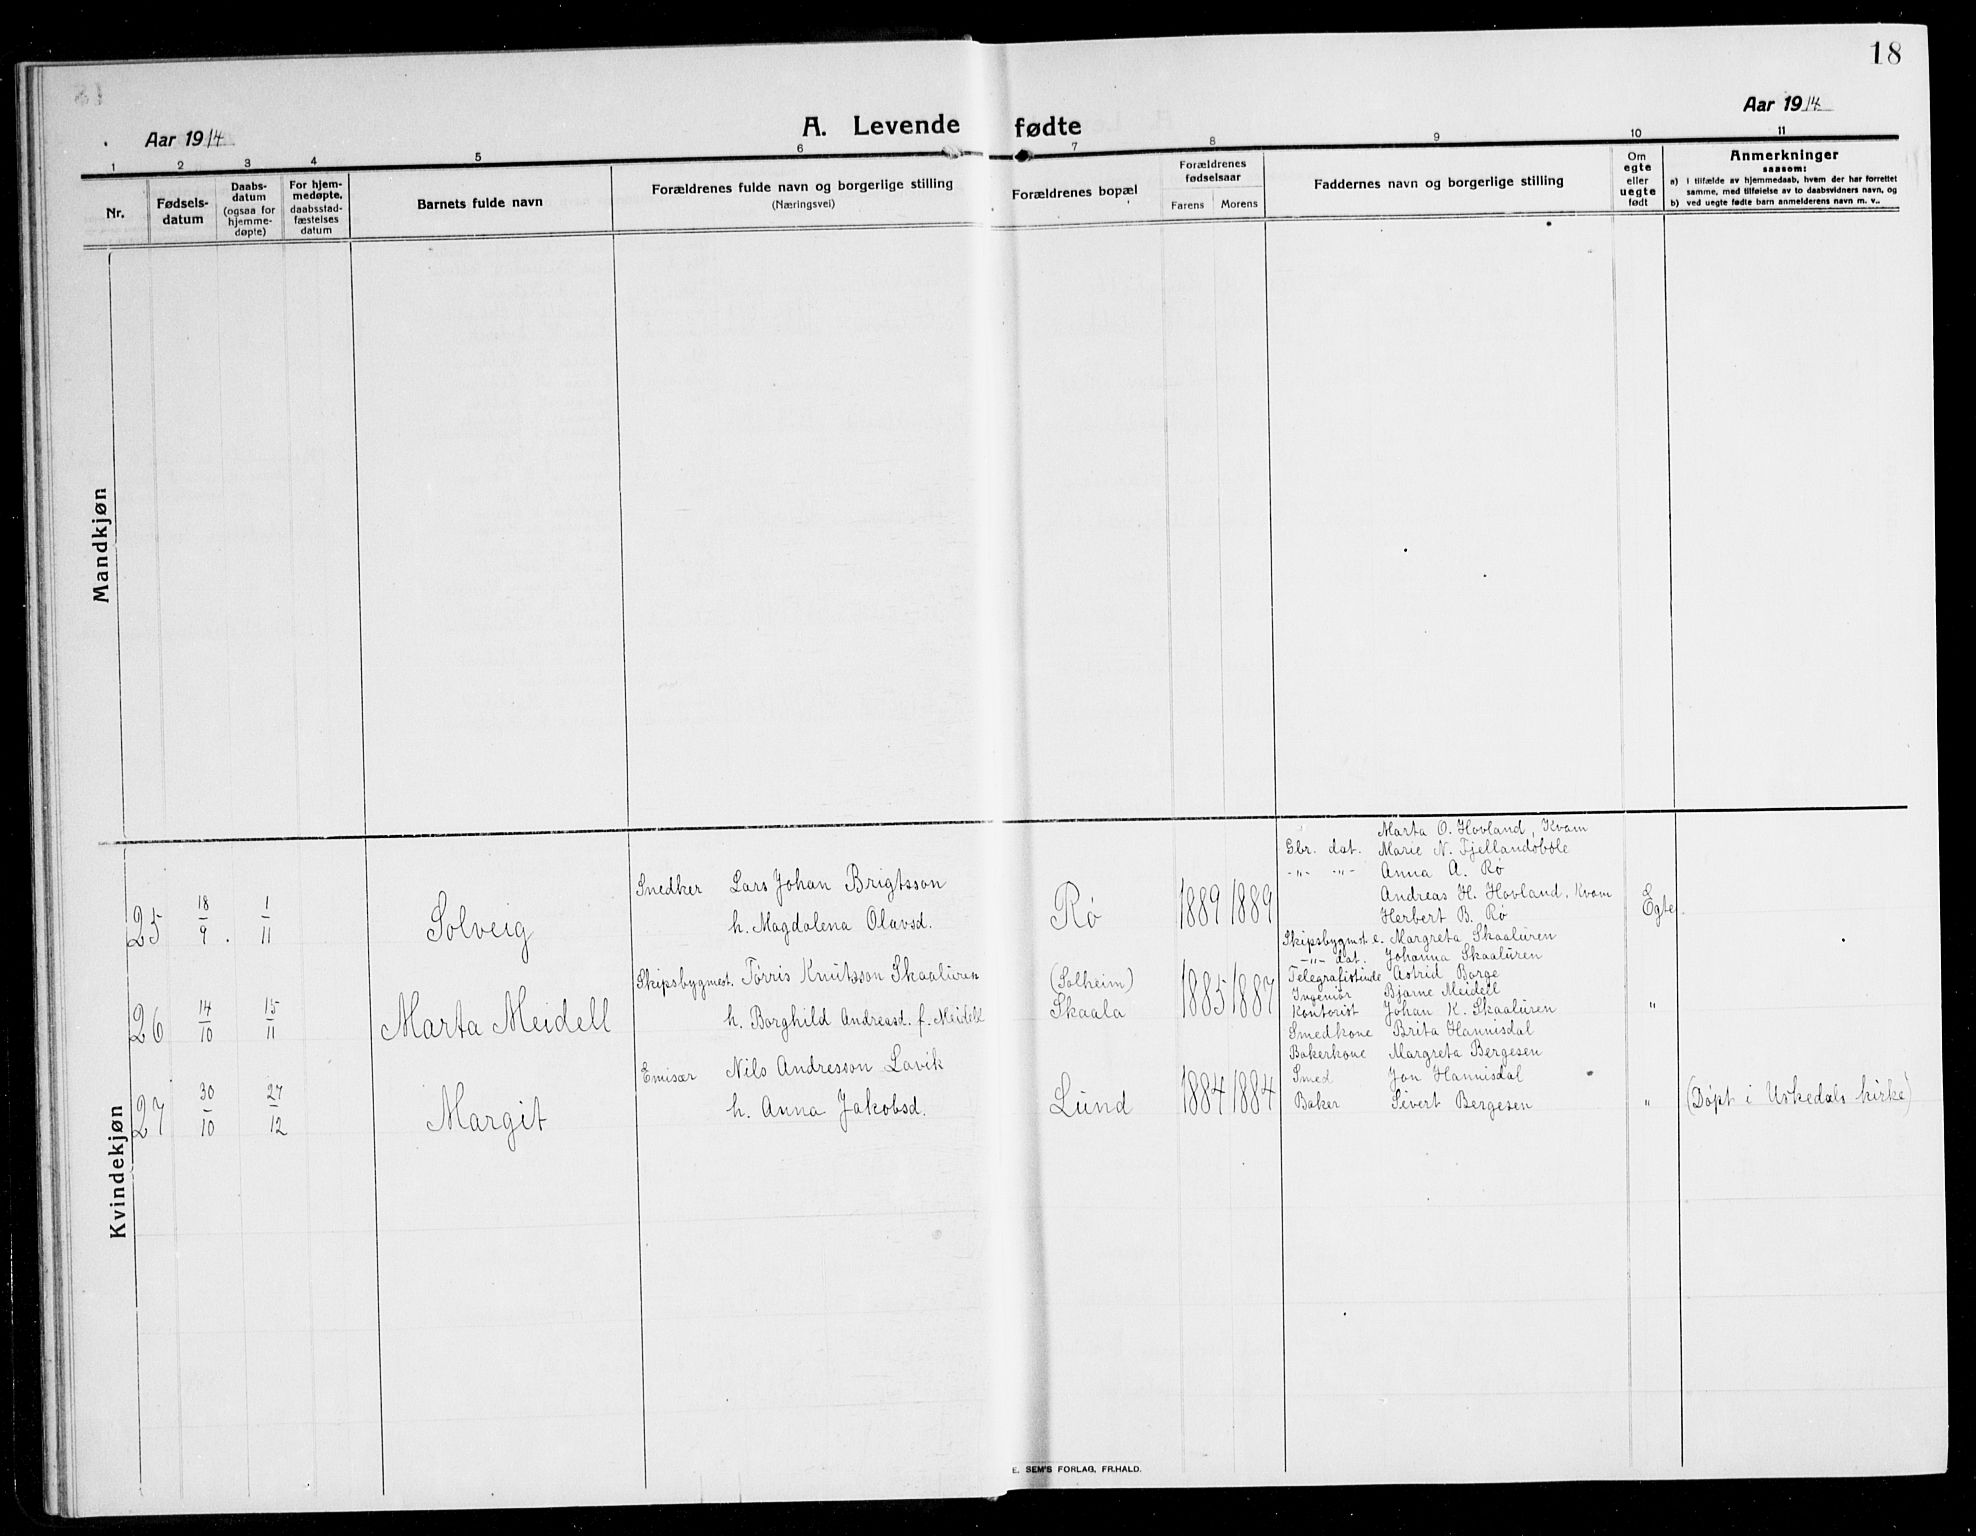 18
Aar 1914
A. Levende fødte
Aar 1914
1 2 3 4 5 6 7 8 9 10 11
Nr.
Fødsels-
datum
Daabs-
datum
(ogsaa for
hjemme-
døpte)
For hjem-
medøpte,
daabsstad-
fæstelses
datum
Barnets fulde navn
Forældrenes fulde navn og borgerlige stilling
(Næringsvei)
Forældrenes bopæl
Forældrenes
fødselsaar
Farens Morens
Faddernes navn og borgerlige stilling
Om
egte
eller
uegte
født
Anmerkninger
saasom:
a) i tilfælde av hjemmedaab, hvem der har forrettet
samme, med tilføielse av to daabsvidners navn, og
b) ved uegte fødte barn anmelderens navn m. v..
Mandkjøn
Kvindekjøn
25 18/9. 1/11 Solveig
Snedker Lars Johan Brigtsson
h. Magdalena Olavsd.
Rø 1889 1889
Marta O. Hovland, Kvam
Gbr. dat. Marie N. Fjellandsbøle
-"- -"- Anna A. Rø
Andreas H. Hovland, Kvam
Herbert B. Rø
Egte.
26 14/10 15/11 Marta Meidell
Skipsbygmest. Tørris Knutsson Skaaluren
h. Borghild Andreasd. f. Meidell
(Solheim)
Skaala
1885 1887
Skipsbygmst. e. Margreta Skaaluren
-"- dat. Johanna Skaaluren
Telegrafistinde Astrid Borge
Ingeniør Bjarne Meidell
Kontorist Johan K. Skaaluren
"
27 30/10 27/12 Margit
Emisær Nils Andresson Lavik
h. Anna Jakobsd.
Lund 1884 1884
Smedkone Brita Hannisdal
Bakerkone Margreta Bergesen
Smed Jon Hannisdal
Baker Sivert Bergesen
"
(Døpt i Uskedals kirke)
E. SEM'S FORLAG, FR.HALD.